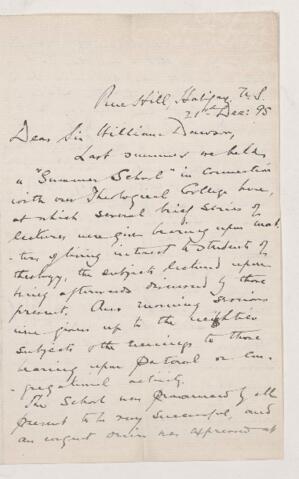 Pine Hill, Halifax, N.S.
21st Dec: 95
Dear Sir William Dawson,
Last summer we held
a "Summer School" in connection
with our Theological College here,
at which several brief series of
lectures were given bearing upon mat-
-ters of living interest to students of
theology, the subjects lectured upon
being afterwards discussed by those
present. Our morning sessions
were given up to the weightier
subjects & the evenings to those
bearing upon pastoral or con-
-gregational activity.
The School was pronounced by all
present to be very successful, and
an earnest desire was expressed at